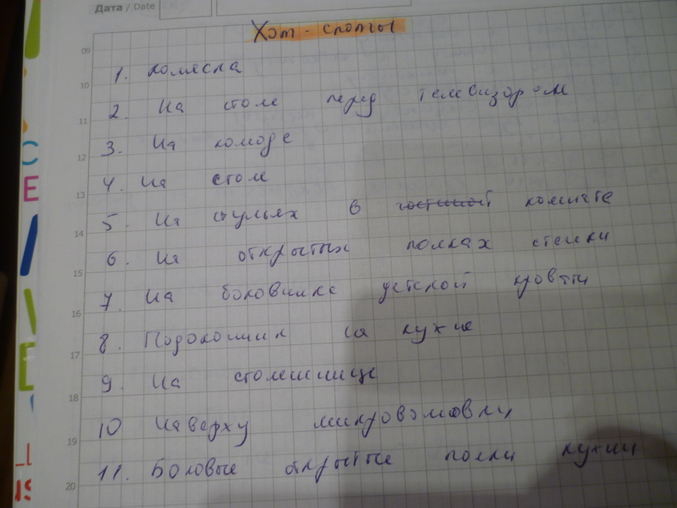 Дата / Date
Хот-споты
09
1. коляска
10
2. На столе перед телевизором
11
3. На комоде
12
4. На столе
13
5. На стульях в гостиной комнате
14
6. На открытых полках стенки
15
7. На боковинке детской кровати
16
8. Подоконник на кухне
17
9. На столешнице
18
10 Наверху микроволновки
19
11. Боковые открытые полки кухни
20